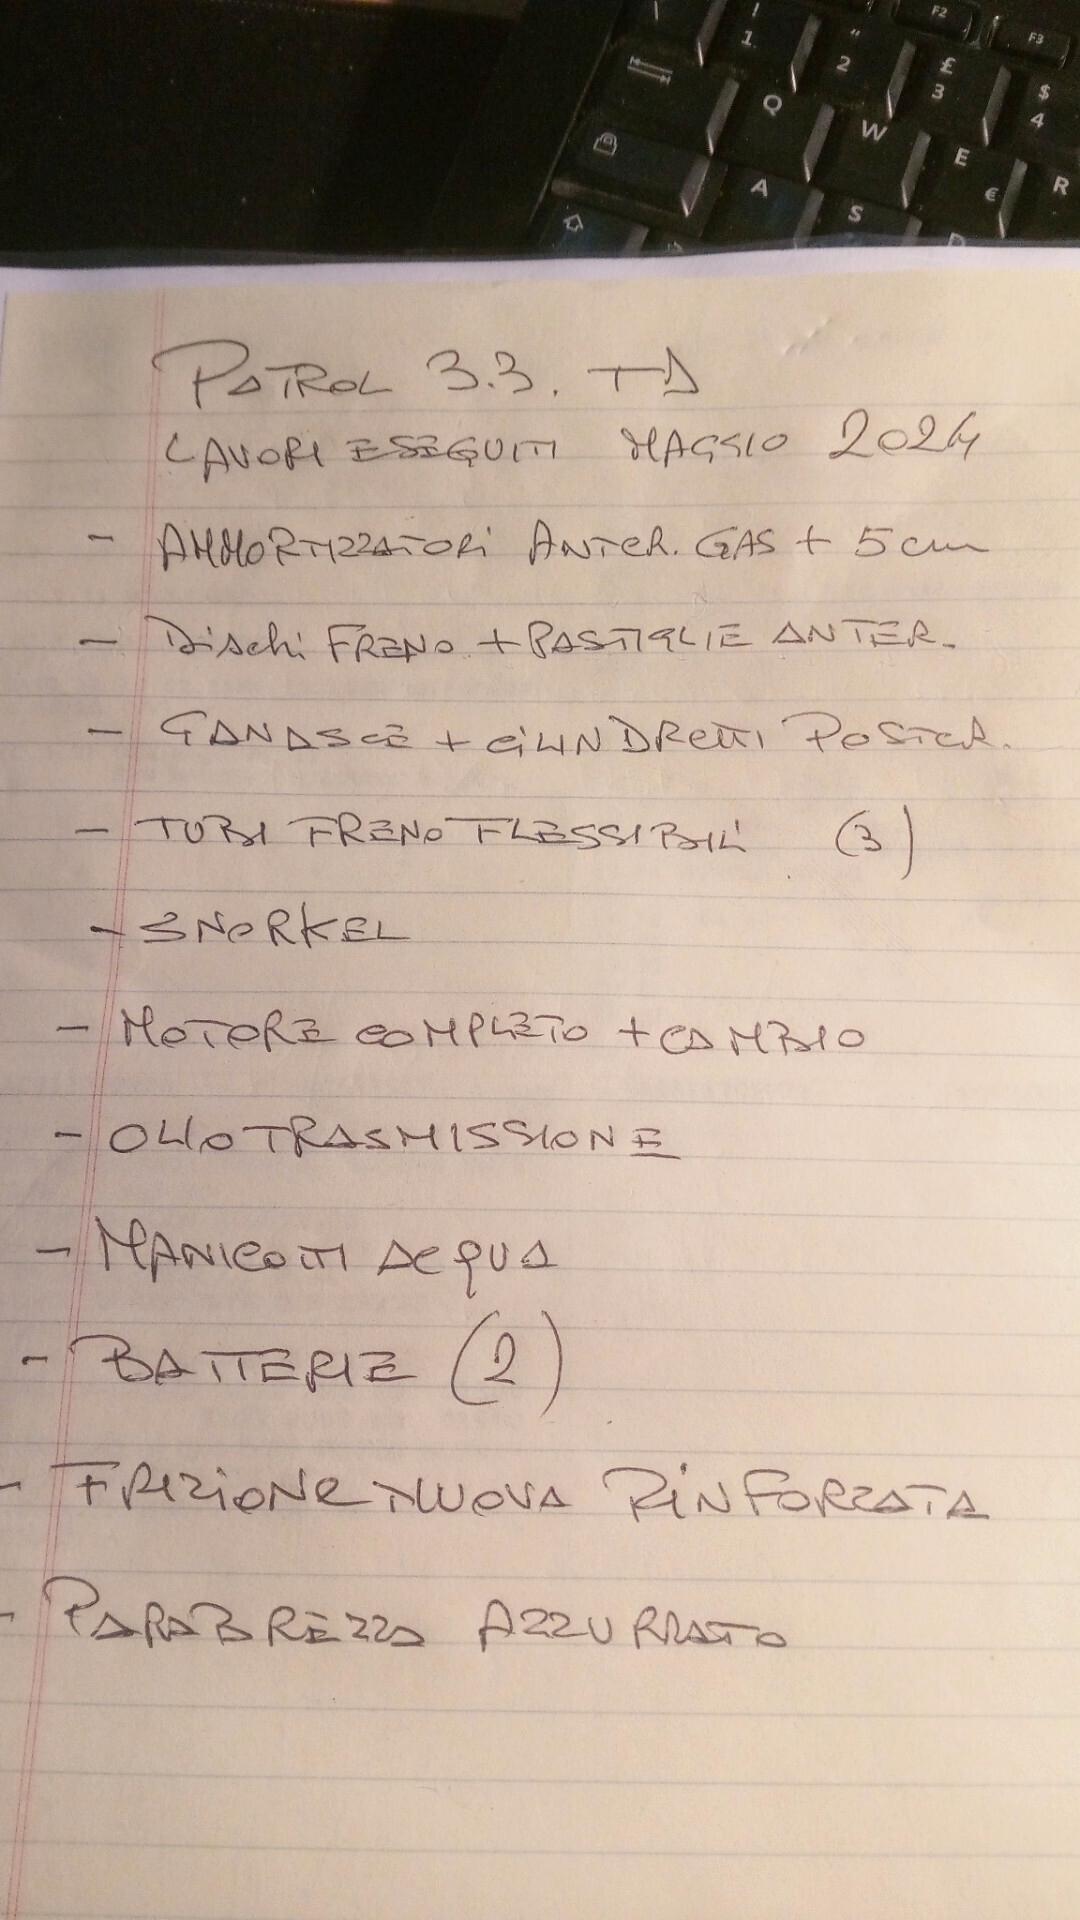 F2
F3
! " £ $
1 2 3 4
Q W E R
€
A S D
PATROL 3.3. TD
LAVORI ESEGUITI MAGGIO 2024
- AMMORTIZZATORI ANTER. GAS + 5 cm
- Dischi FRENO + PASTIGLIE ANTER.
- GANASCE + CILINDRETTI POSTER.
- TUBI FRENO FLESSIBILI (3)
- SNORKEL
- MOTORE COMPLETO + CAMBIO
- OLIO TRASMISSIONE
- MANICOTTI ACQUA
- BATTERIE (2)
- FRIZIONE NUOVA RINFORZATA
- PARABREZZA AZZURRATO